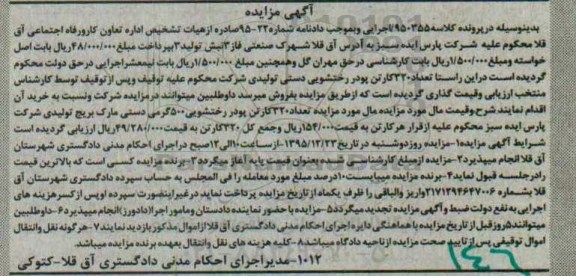 آگهی مزایده
بدینوسیله درپرونده کلاسه ۹۵۰۳۵۵اجرایی وبموجب دادنامه شماره۲۲-۹۵صادره ازهیات تشخیص اداره تعاون کارورفاه اجتماعی آق
قلا محکوم علیه شرکت پارس ایده سبز به آدرس آق قلا شهرک صنعتی فاز۲نبش تولید۳بپرداخت مبلغ۴۸/۰۰۰/۰۰۰ریال بابت اصل
خواسته ومبلغ۱/۵۰۰/۰۰۰ریال بابت کارشناسی درحق مهران گل وهمچنین مبلغ۱/۵۰۰/۰۰۰ریال بابت نیمعشراجرایی درحق دولت محکوم
گردیده است در این راستا تعداد۳۲۰کارتن پودر رختشویی دستی تولیدی شرکت محکوم علیه توقیف وپس ازتوقیف توسط کارشناس
منتخب ارزیابی وقیمت گذاری گردیده است که ازطریق مزایده بفروش میرسد داوطلبین میتوانند درمزایده شرکت ونسبت به خرید آن
اقدام نمایند شرح وقیمت مال مورد مزایده مال مورد مزایده تعداد۳۲۰کارتن پودر رختشویی۵۰۰گرمی دستی مارک بریچ تولیدی شرکت
پارس ایده سبز محکوم علیه ازقرار هرکارتن به قیمت۱۵۴/۰۰۰ریال وجمع کل ۳۲۰کارتن به قیمت۴۹/۲۸۰/۰۰۰ریال ارزیابی گردیده است
شرایط آگهی مزایده۱-مزایده روزدوشنبه درتاریخ۱۳۹۵/۱۲/۲۳ازساعت۱۰الی۱۲صبح دراجرای احکام مدنی دادگستری شهرستان
آق قلا انجام میپذیرد۲-مزایده ازمبلغ کارشناسی شده بعنوان قیمت پایه آغاز میگردد۳-برنده مزایده کسی است که بالاترین قیمت
رادرجلسه قبول نماید۴-برنده مزایده میبایست۱۰درصد مبلغ مورد معامله را فی المجلس به حساب سپرده دادگستری شهرستان آق
قلا بشماره ۲۱۷۱۲۹۴۶۴۷۰۰۶واریز والباقی را ظرف یکماه ازتاریخ مزایده پرداخت نماید درغیراینصورت سپرده اوپس ازکسرهزینه های
اجرایی به نفع دولت ضبط وآگهی مزایده تجدید میگردد۵-مزایده با حضور نماینده دادستان و ماموراجرا(دادورز)انجام میپذیرد۶-داوطلبین
میتوانند۵روزقبل از تاریخ مزایده با هماهنگی دایره اجرای احکام مدنی دادگستری آق قلا ازاموال مذکور بازدید نمایند۷-هرگونه نقل وانتقال
اموال توقیفی پس از تایید صحت مزایده ازناحیه دادگاه میباشد۸-کلیه هزینه های نقل وانتقال بعهده برنده مزایده میباشد.
۱۰۱۲-مدیراجرای احکام مدنی دادگستری آق قلا-کتوکی
۱۴۶